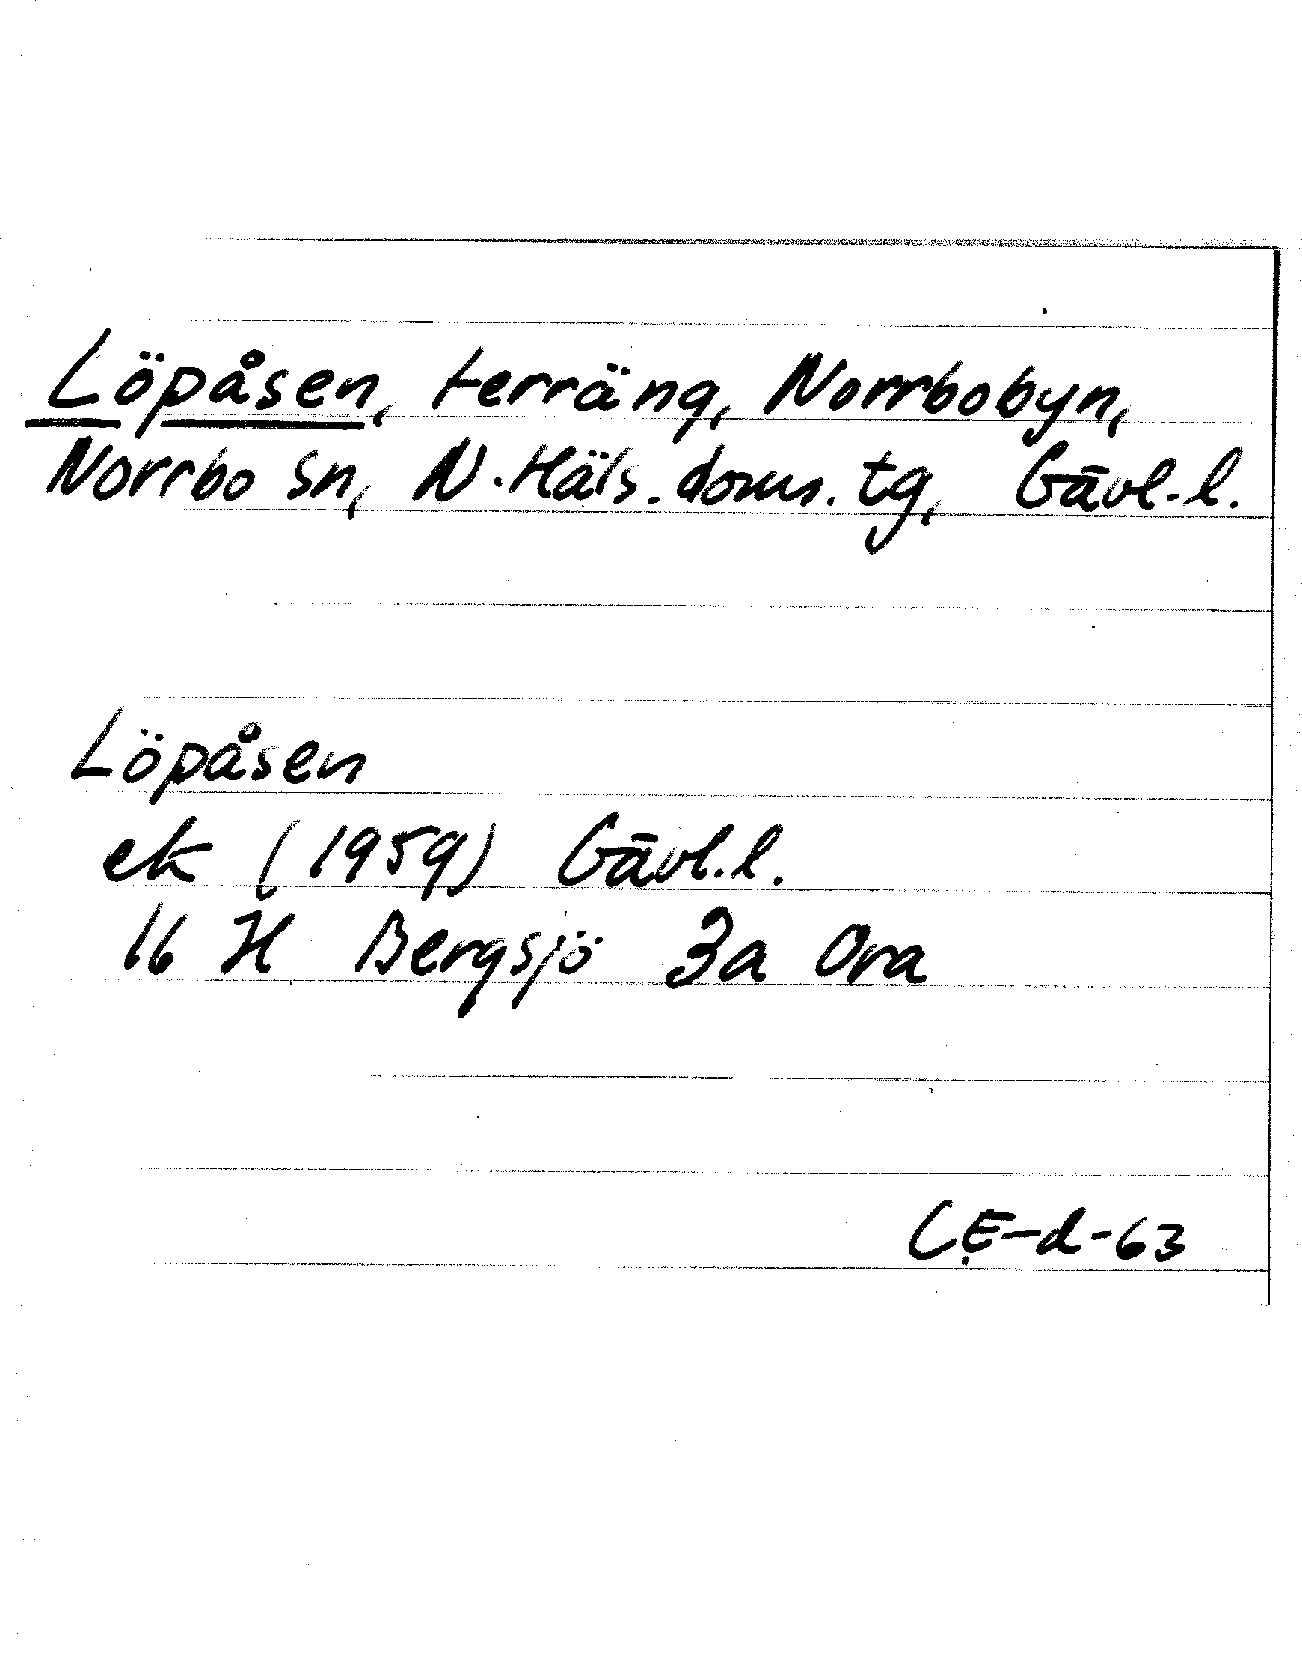 Löpåsen, terräng, Norrbobyn,
Norrbo sn, N. Häls. doms. tg, Gävl. l.
Löpåsen
ek (1959) Gävl. l.
16 H Bergsjö 3a Ora
CE-d-63